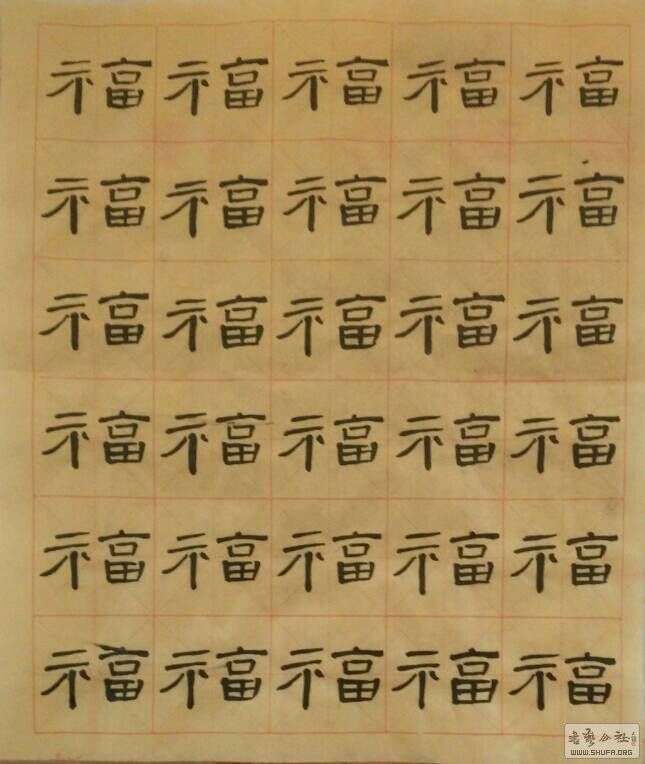 福福福福福
福福福福福
福福福福福
福福福福福
福福福福福
福福福福福
WWW.SHUFA.ORG